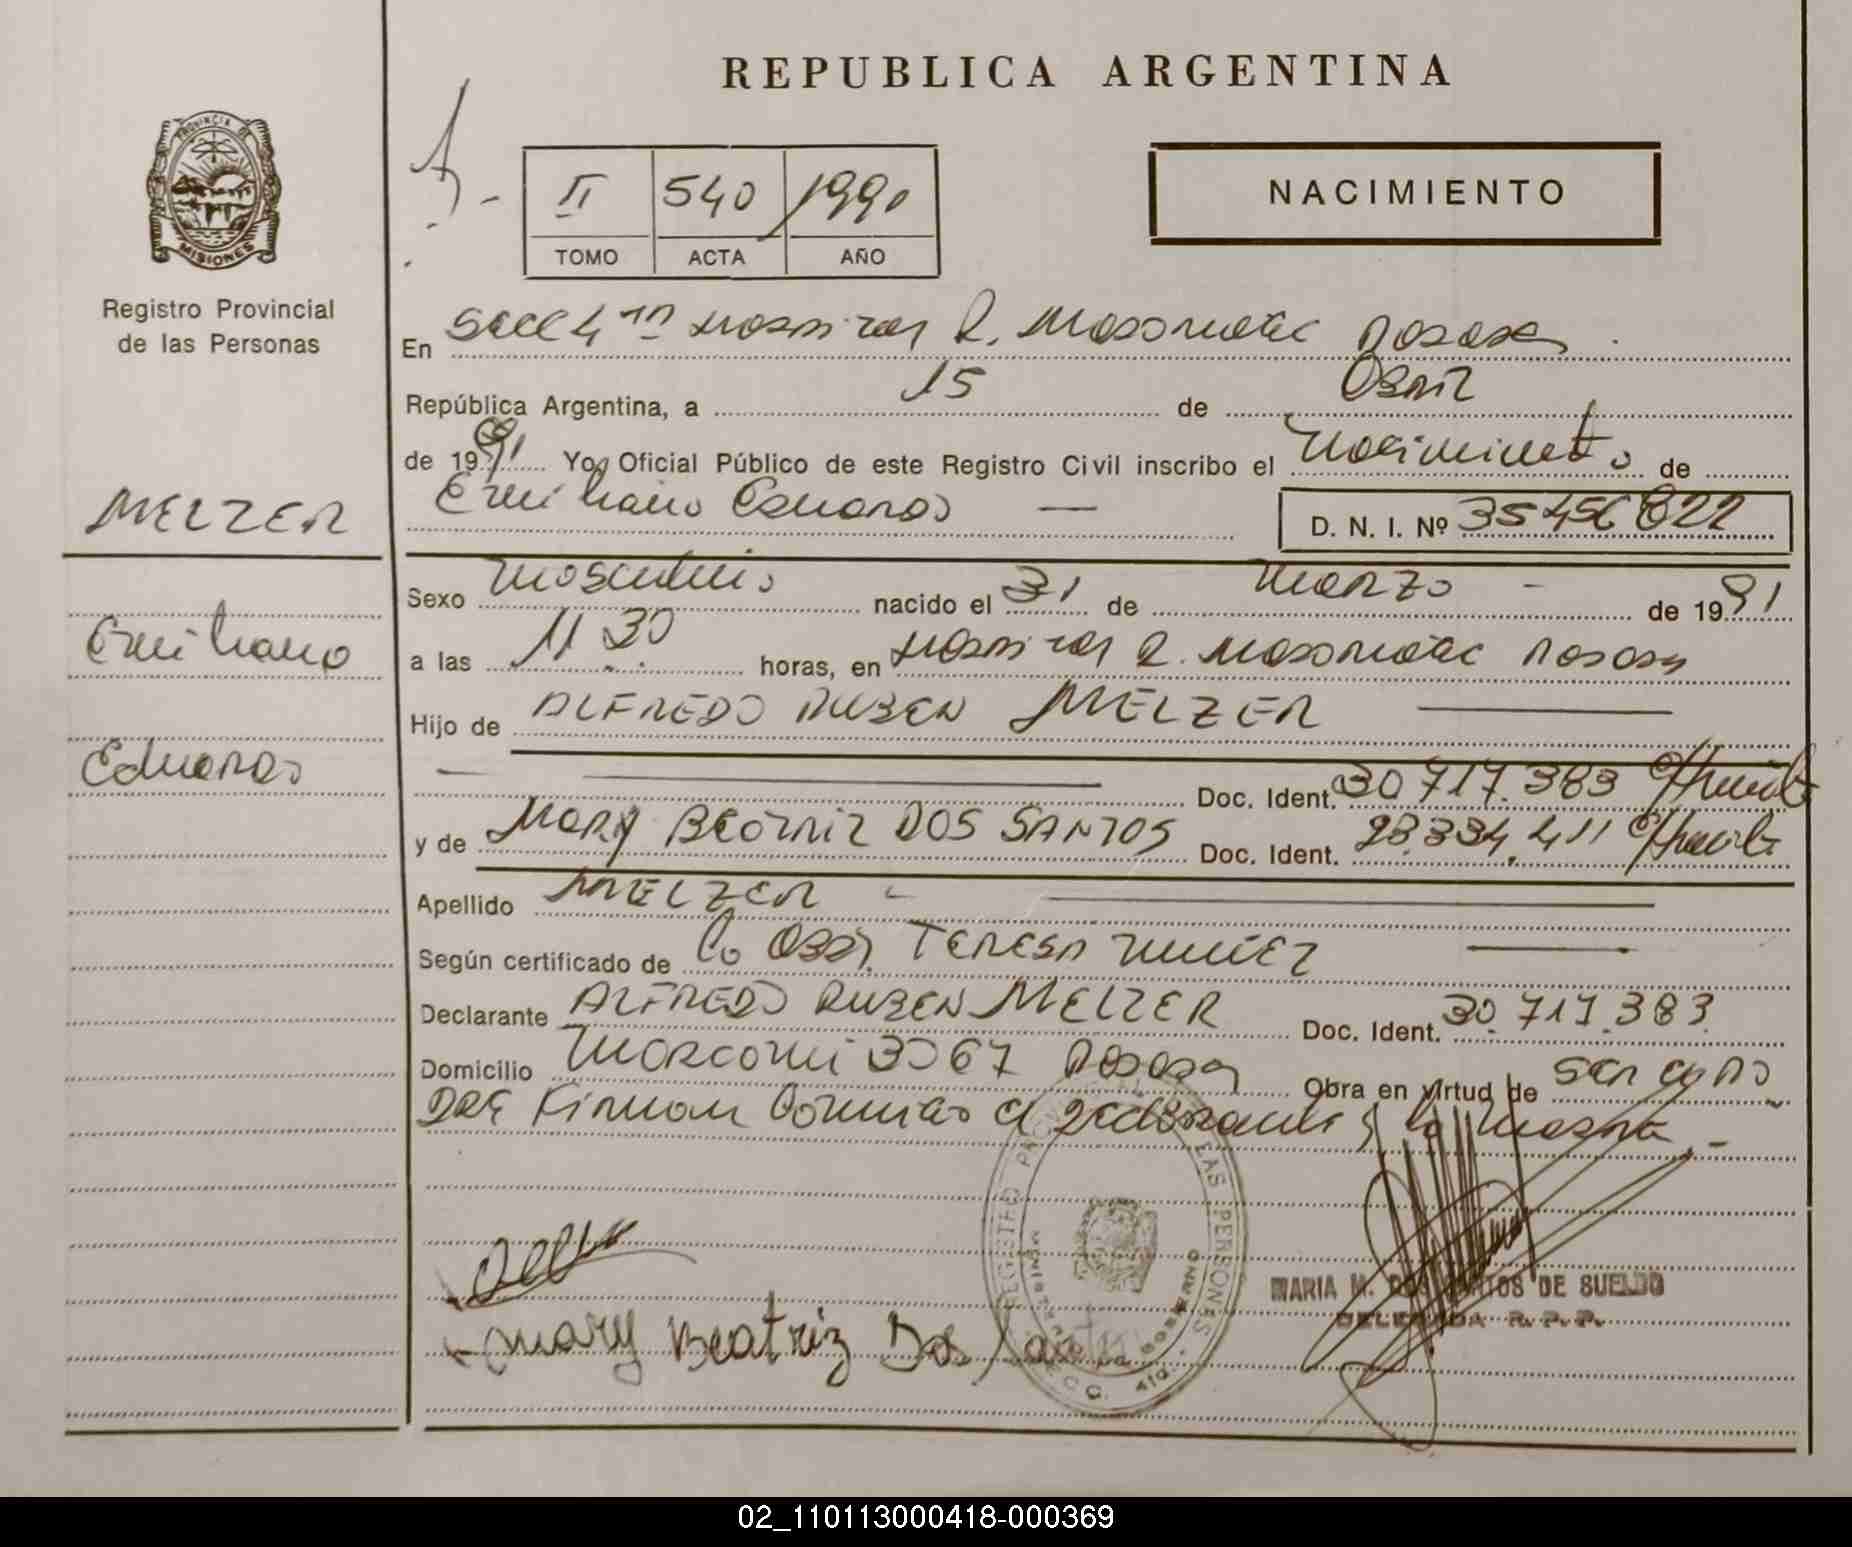 REPUBLICA ARGENTINA
PROVINCIA DE
MISIONES
Registro Provincial
de las Personas
II 540 1990
TOMO ACTA AÑO
NACIMIENTO
En Secc 4ta Hospital R. Madariaga Posadas
República Argentina, a 15 de Abril
de 1991 Yo, Oficial Público de este Registro Civil inscribo el Nacimiento de
Emiliano Eduardo — D. N. I. Nº 35456822
MELZER
Emiliano
Eduardo
Sexo Masculino nacido el 31 de Marzo - de 1991
a las 11.30 horas, en Hospital R. Madariaga Posadas
Hijo de ALFREDO RUBEN MELZER
Doc. Ident. 30.717.383
y de Mary BEATRIZ DOS SANTOS Doc. Ident. 28.334.411
Apellido MELZER -
Según certificado de La Obst. TERESA NUÑEZ
Declarante ALFREDO RUBEN MELZER Doc. Ident. 30.717.383
Domicilio Marconi 3067 Posadas Obra en virtud de ser cudo
DRE Firman Conmigo el declarante y la madre -
REGISTRO LAS PERSONAS
GOBIERNO
Mary Beatriz Dos Santos
MARIA M. DOS SANTOS DE SUELDO
DELEGADA R.P.P.
02_110113000418-000369